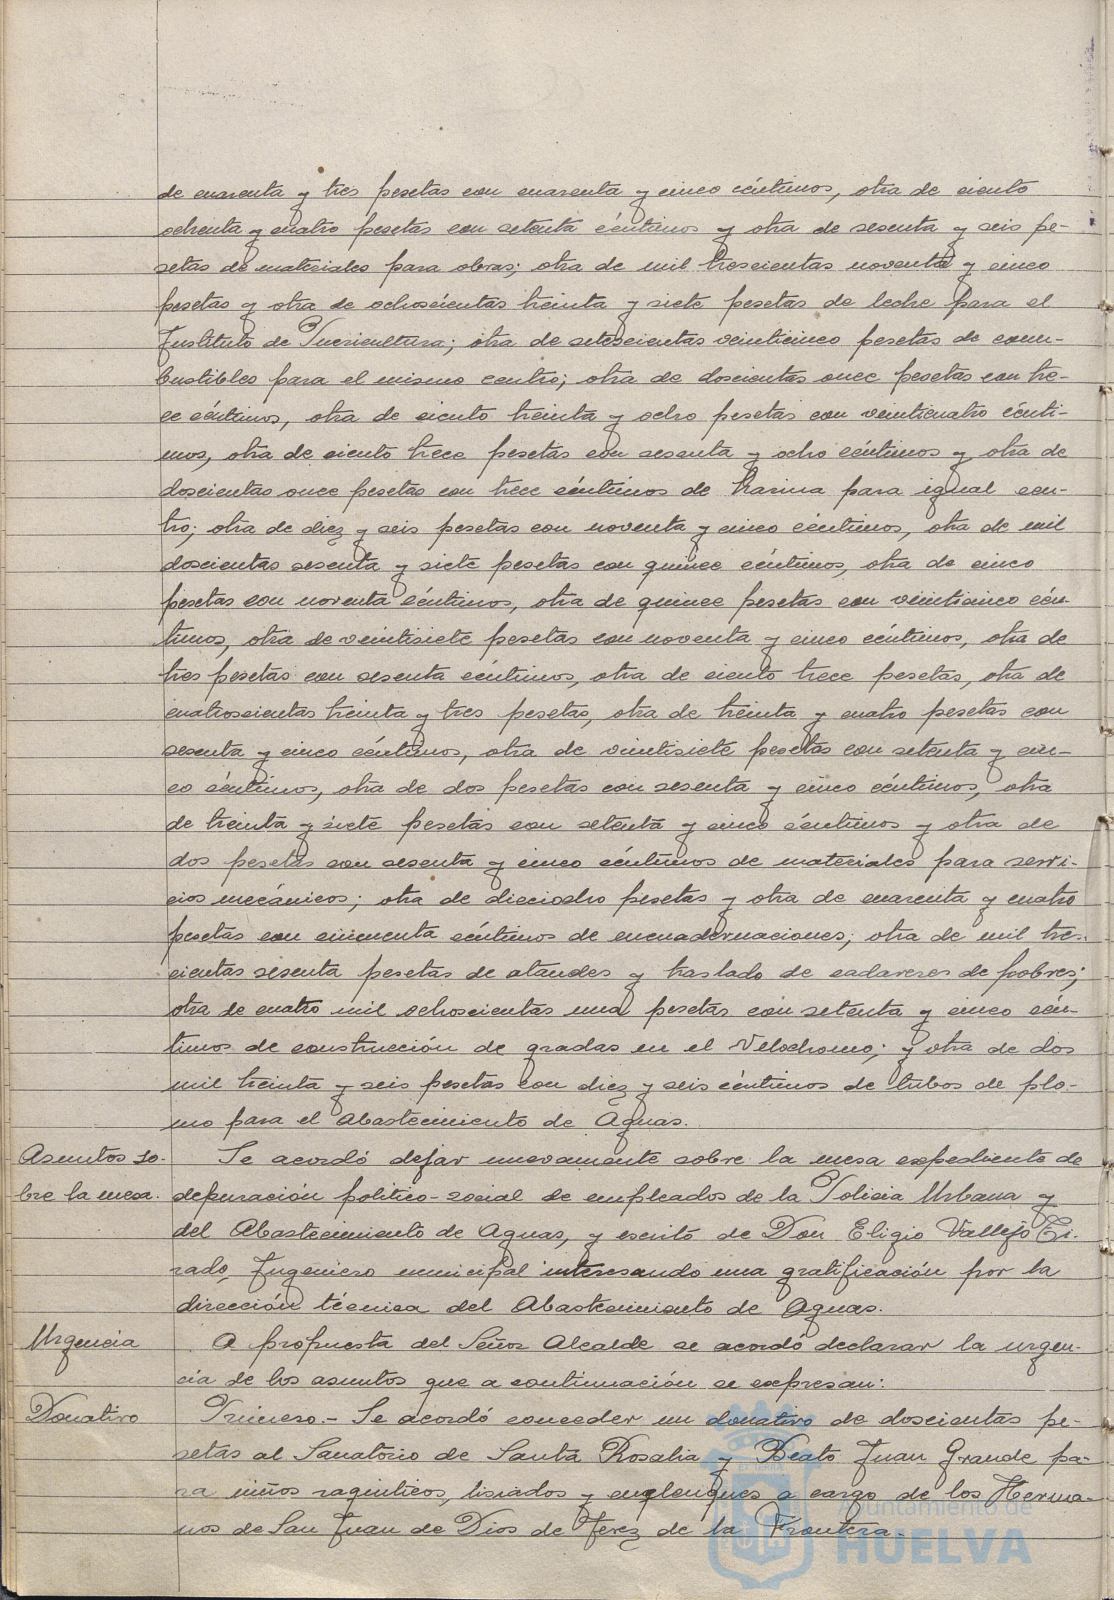 de cuarenta y tres pesetas con cuarenta y cinco céntimos, otra de ciento
ochenta y cuatro pesetas con setenta céntimos y otra de sesenta y seis pe-
setas de materiales para obras; otra de mil trescientas noventa y cinco
pesetas y otra de ochoscientas treinta y siete pesetas de leche para el
Instituto de Puericultura; otra de setescientas veinticinco pesetas de com-
bustibles para el mismo centro; otra de doscientas once pesetas con tre-
ce céntimos, otra de ciento treinta y ocho pesetas con veinticuatro cénti-
mos, otra de ciento trece pesetas con sesenta y ocho céntimos y otra de
doscientas once pesetas con trece céntimos de harina para igual cen-
tro; otra de diez y seis pesetas con noventa y cinco céntimos, otra de mil
doscientas sesenta y siete pesetas con quince céntimos, otra de cinco
pesetas con noventa céntimos, otra de quince pesetas con veinticinco cén-
timos, otra de veintisiete pesetas con noventa y cinco céntimos, otra de
tres pesetas con sesenta céntimos, otra de ciento trece pesetas, otra de
cuatroscientas treinta y tres pesetas, otra de treinta y cuatro pesetas con
sesenta y cinco céntimos, otra de veintisiete pesetas con setenta y cin-
co céntimos, otra de dos pesetas con sesenta y cinco céntimos, otra
de treinta y siete pesetas con setenta y cinco céntimos y otra de
dos pesetas con sesenta y cinco céntimos de materiales para servi-
cios mecánicos; otra de dieciocho pesetas y otra de cuarenta y cuatro
pesetas con cincuenta céntimos de encuadernaciones; otra de mil tres-
cientas sesenta pesetas de ataudes y traslado de cadaveres de pobres;
otra de cuatro mil ochoscientas una pesetas con setenta y cinco cén-
timos de construcción de gradas en el Velodromo; y otra de dos
mil treinta y seis pesetas con diez y seis céntimos de tubos de plo-
mo para el Abastecimiento de Aguas.
Asuntos so-
bre la mesa.
Se acordó dejar nuevamente sobre la mesa expediente de
depuración politico-social de empleados de la Policia Urbana y
del Abastecimiento de Aguas, y escrito de Don Eligio Vallejo Ti-
rado, Ingeniero municipal interesando una gratificación por la
dirección técnica del Abastecimiento de Aguas.
Urgencia
A propuesta del Señor Alcalde se acordó declarar la urgen-
cia de los asuntos que a continuación se expresan:
Donativo
Primero.- Se acordó conceder un donativo de doscientas pe-
setas al Sanatorio de Santa Rosalia y Beato Juan Grande pa-
ra niños raquiticos, lisiados y enclenques a cargo de los Herma-
nos de San Juan de Dios de Jerez de la Frontera.-
Ayuntamiento de
HUELVA